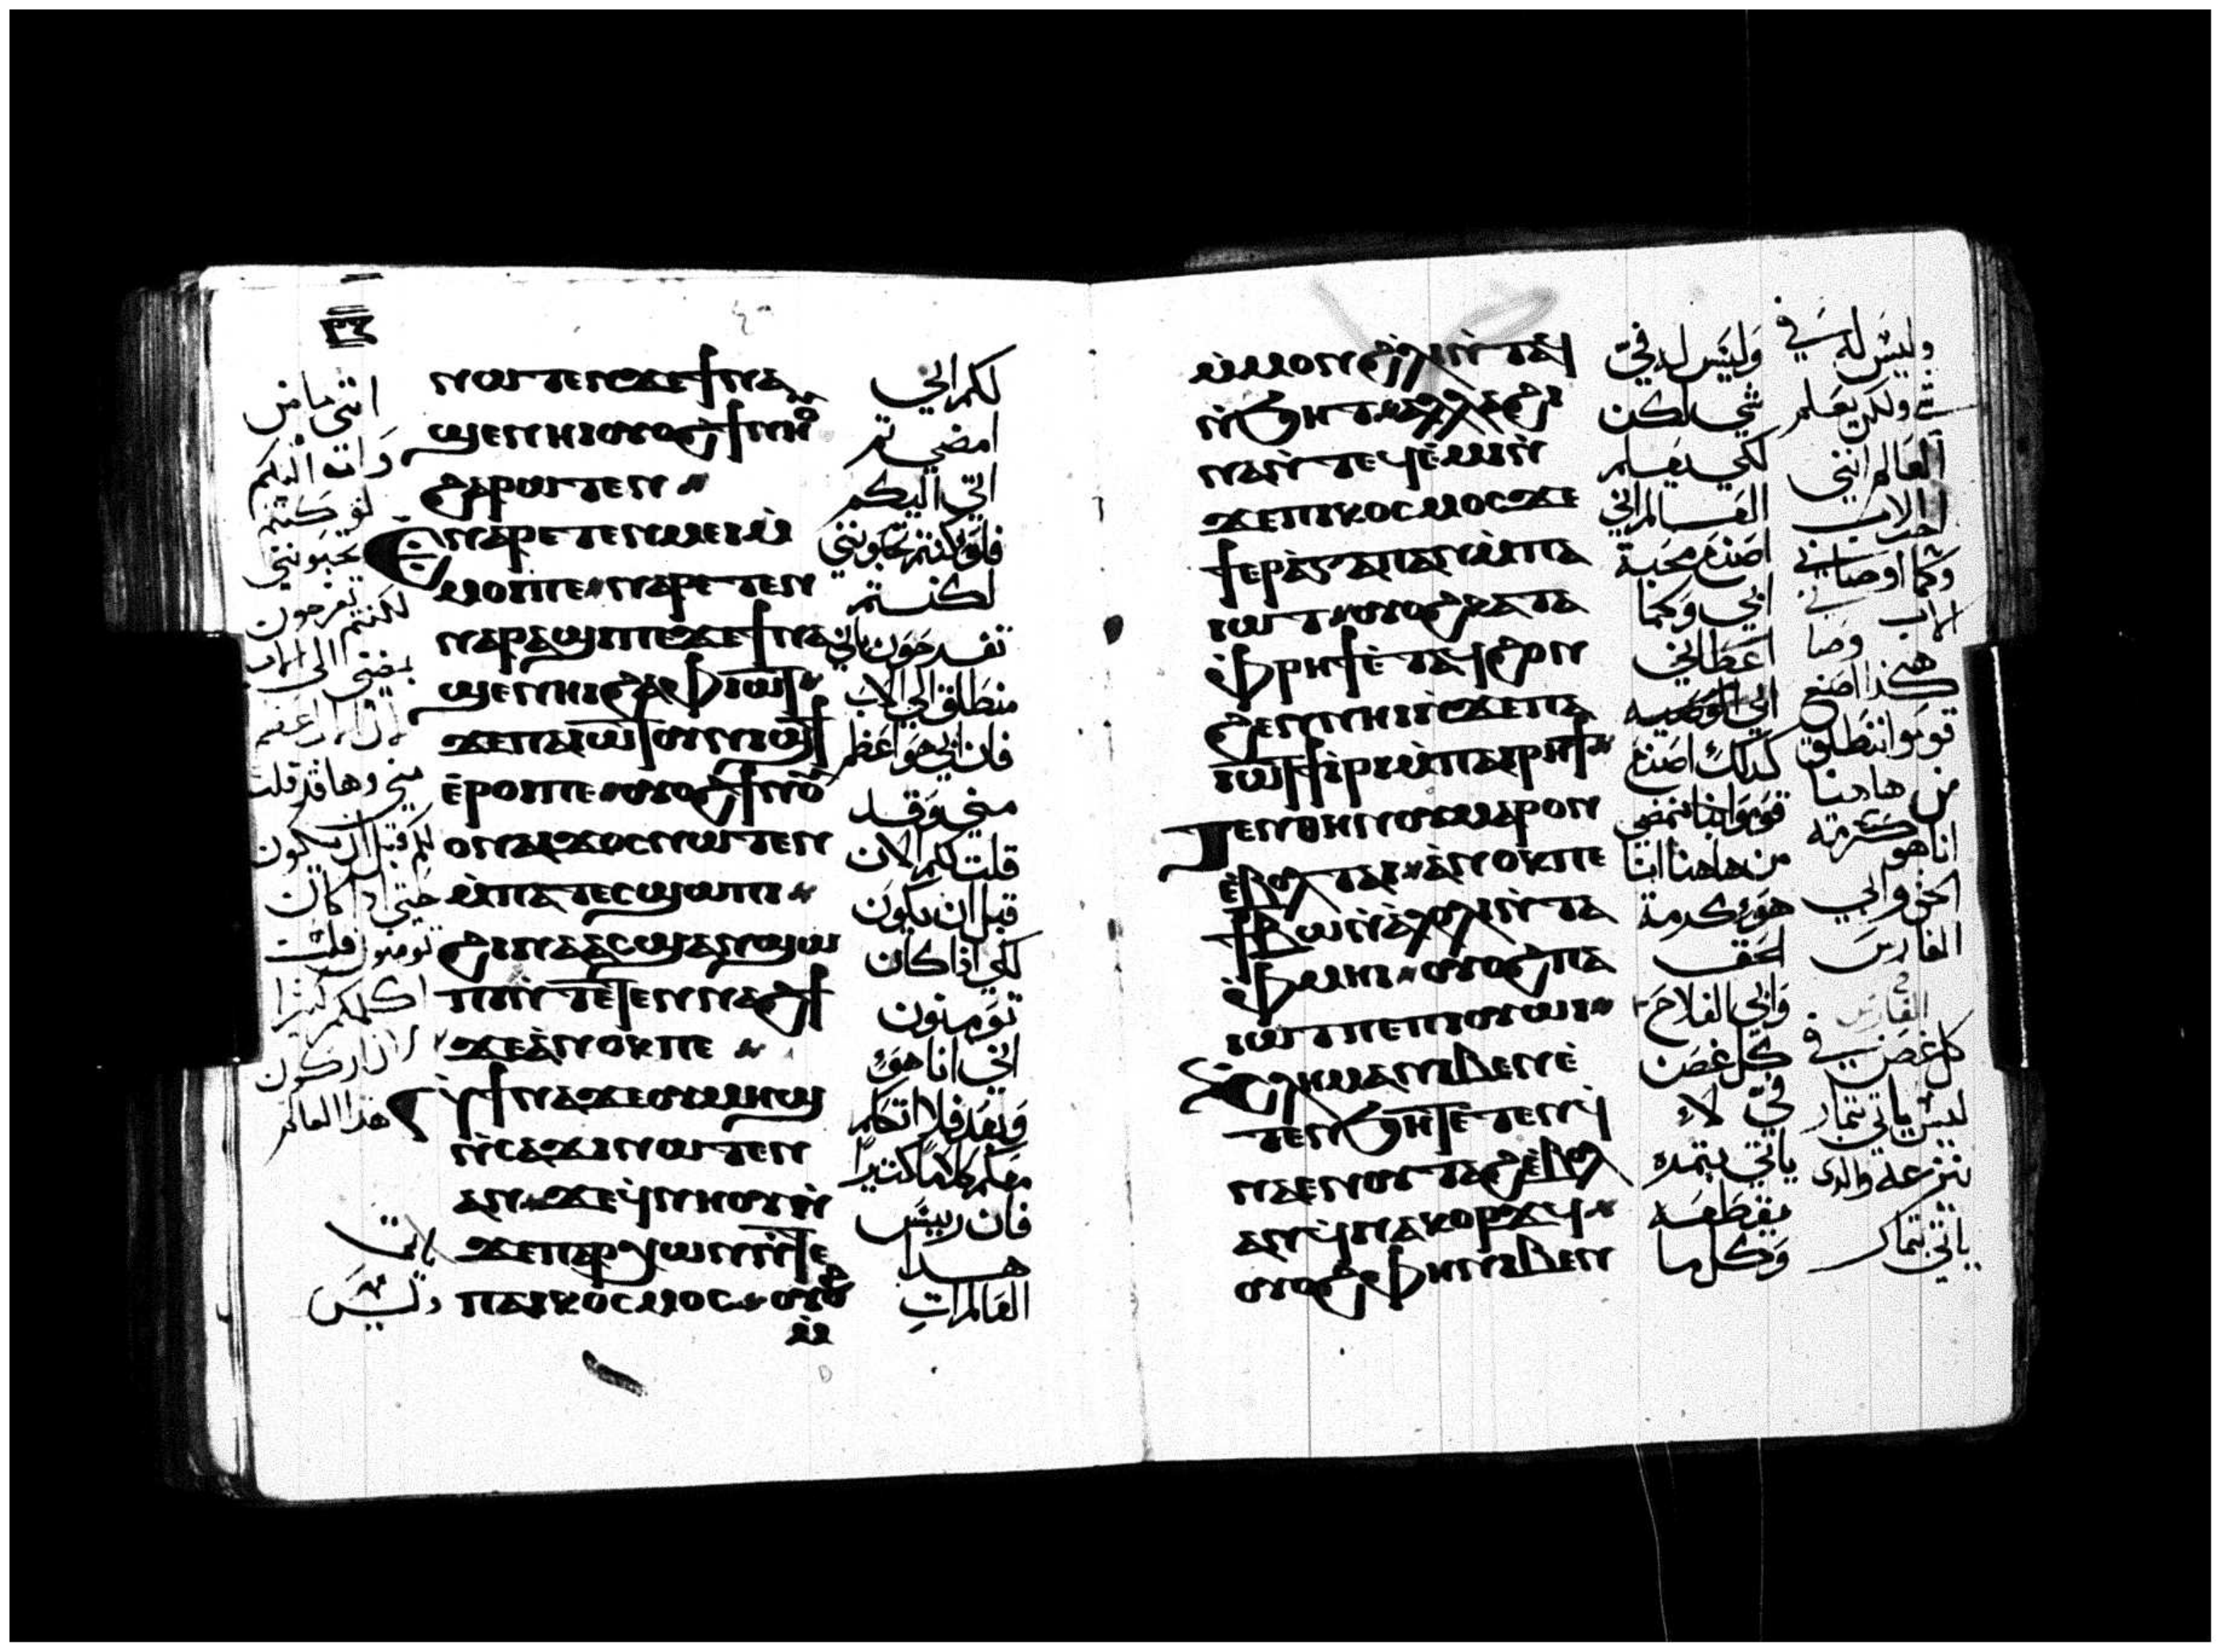 ⲛⲱⲧⲉⲛϫⲉϯⲛⲁ
ϣⲉⲛⲏⲓⲟⲩⲟϩϯⲛⲏⲟⲩ
ϩⲁⲣⲱⲧⲉⲛ
ⲉⲛⲁⲣⲉⲧⲉⲛⲙⲉⲓⲙ̀
ⲙⲟⲓⲡⲉ ⲛⲁⲣⲉⲧⲉⲛ
ⲛⲁⲣⲁϣⲓⲡⲉϫⲉϯⲛⲁ
ϣⲉⲛⲏⲓϩⲁⲫⲓⲱⲧ
ϫⲉⲡⲁⲓⲱⲧⲟⲩⲛⲓϣϯ
ⲉ̀ⲣⲟⲓⲡⲉ ⲟⲩⲟϩϯⲛⲟⲩ
ⲟⲛⲁⲓϫⲟⲥⲛⲱⲧⲉⲛ
ⲙ̀ⲡⲁⲧⲉⲥϣⲱⲡⲓ
ϩⲓⲛⲁⲁⲥϣⲁⲛϣⲱ
ⲡⲓⲛ̀ⲧⲉⲧⲉⲛⲛⲁϩϯ
ϫⲉⲁ̀ⲛⲟⲕⲡⲉ
ϯⲛⲁϫⲉⲟⲩⲙⲏϣ
ⲛ̀ⲥⲁϫⲓⲛⲱⲧⲉⲛ
ⲁⲛ ϫⲉϥⲛⲏⲟⲩⲛ̀
ϫⲉⲡⲁⲣⲭⲱⲛⲛ̀ⲧⲉ
ⲡⲁⲓⲕⲟⲥⲙⲟⲥ ⲟⲩⲟϩ
ⲙ̀ⲙ
لكم اني
امضي ثم
اتي اليكم
فلو كنتم تحبونني
لكنتم
تفرحون باني
منطلق الي الاب
فان ابي هو اعظم
مني وقد
قلت لكم الان
قبل ان يكون
لكي اذا كان
تومنون
اني انا هو
كلاما كثيرا
فان رييس
هدا
العالم ات
انني ماض
وات اليكم
لو كنتم
تحبونني
لكنتم تفرحون
بمضيي الى الاب
مني وها قد قلت
لكم قبل ان يكون
حتي اذا كان
تومنون
اكلمكم كثيرا
لان اركون
هذا العالم
ياتي
وليس
ⲙ̀ⲙⲟⲛϩ̀ⲗⲓⲛ̀ⲧⲁϥ
ⲛ̀ϧⲏⲧ ⲁⲗⲗⲁϩⲓ
ⲛⲁⲛ̀ⲧⲉϥⲉ̀ⲙⲓⲛ̀
ϫⲉⲡⲓⲕⲟⲥⲙⲟⲥϫⲉ
ϯⲉⲣⲁ̀ⲅⲁⲡⲁⲛⲙ̀ⲡⲁ
ⲓⲱⲧ ⲟⲩⲟϩⲕⲁⲧⲁ
ⲫ̀ⲣⲏϯⲉ̀ⲧⲁϥϩⲟⲛ
ϩⲉⲛⲛⲏⲓⲛ̀ϫⲉⲡⲁ
ⲓⲱⲧϯⲓ̀ⲣⲓⲙ̀ⲡⲁⲓⲣⲏϯ
ⲧⲉⲛⲑⲏⲛⲟⲩⲙⲁⲣⲟⲛ
ⲉ̀ⲃⲟⲗⲧⲁⲓ ⲁ̀ⲛⲟⲕⲡⲉ
ϯⲃⲱⲛ̀ⲁ̀ⲗⲟⲗⲓⲛ̀ⲧⲁ
ⲫ̀ⲙⲏⲓ ⲟⲩⲟϩⲡⲁ
ⲓⲱⲧⲡⲉⲡⲓⲟⲩⲱⲓ
ⲕⲗⲏⲙⲁⲛⲓⲃⲉⲛⲉ̀
ⲧⲉⲛϧⲏⲧⲉ̀ⲧⲉⲛϥ
ⲛⲁⲉⲛⲟⲩⲧⲁϩⲉ̀ⲃⲟⲗ
ⲁⲛϥⲛⲁⲕⲟⲣϫϥ
ⲟⲩⲟϩⲫⲏⲛⲓⲃⲉⲛ
وليس له في
شي لكن
لكي يعلم
العالم اني
اصنع محبة
ابي وكما
اعطاني
ابي الوصيه
كدلك اصنع
قوموا بنا نمضي
من هاهنا انا
هو كرمة
الحق
وابي الفلاح
كل غصن
في لا
ياتي بثمره
يقطعه
وكل ما
وليس له في
شي ولكن يعلم
العالم انني
احب الاب
وكما اوصاني
الاب
هكذا اصنع
قوموا ننطلق
من هاهنا
انا هو كرمة
الحق وابي
الفارس
كل غصن في
ليس ياتي بثمار
ينزعه والدى
ياتي بثمار